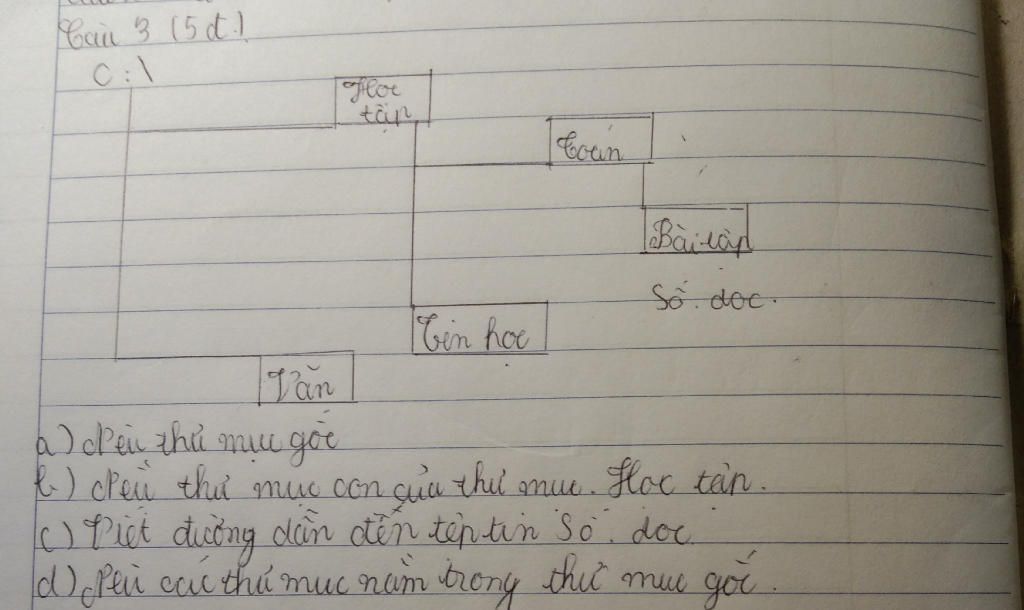 Câu 3 (5 đ.)
C:\
Học
tập
Toán
Bài tập
Số.doc.
Tin học
Văn
a) Nêu thư mục gốc
b) Nêu thư mục con của thư mục. Học tập.
c) Viết đường dẫn đến tệp tin Số.doc
d) Nêu các thư mục nằm trong thư mục gốc.